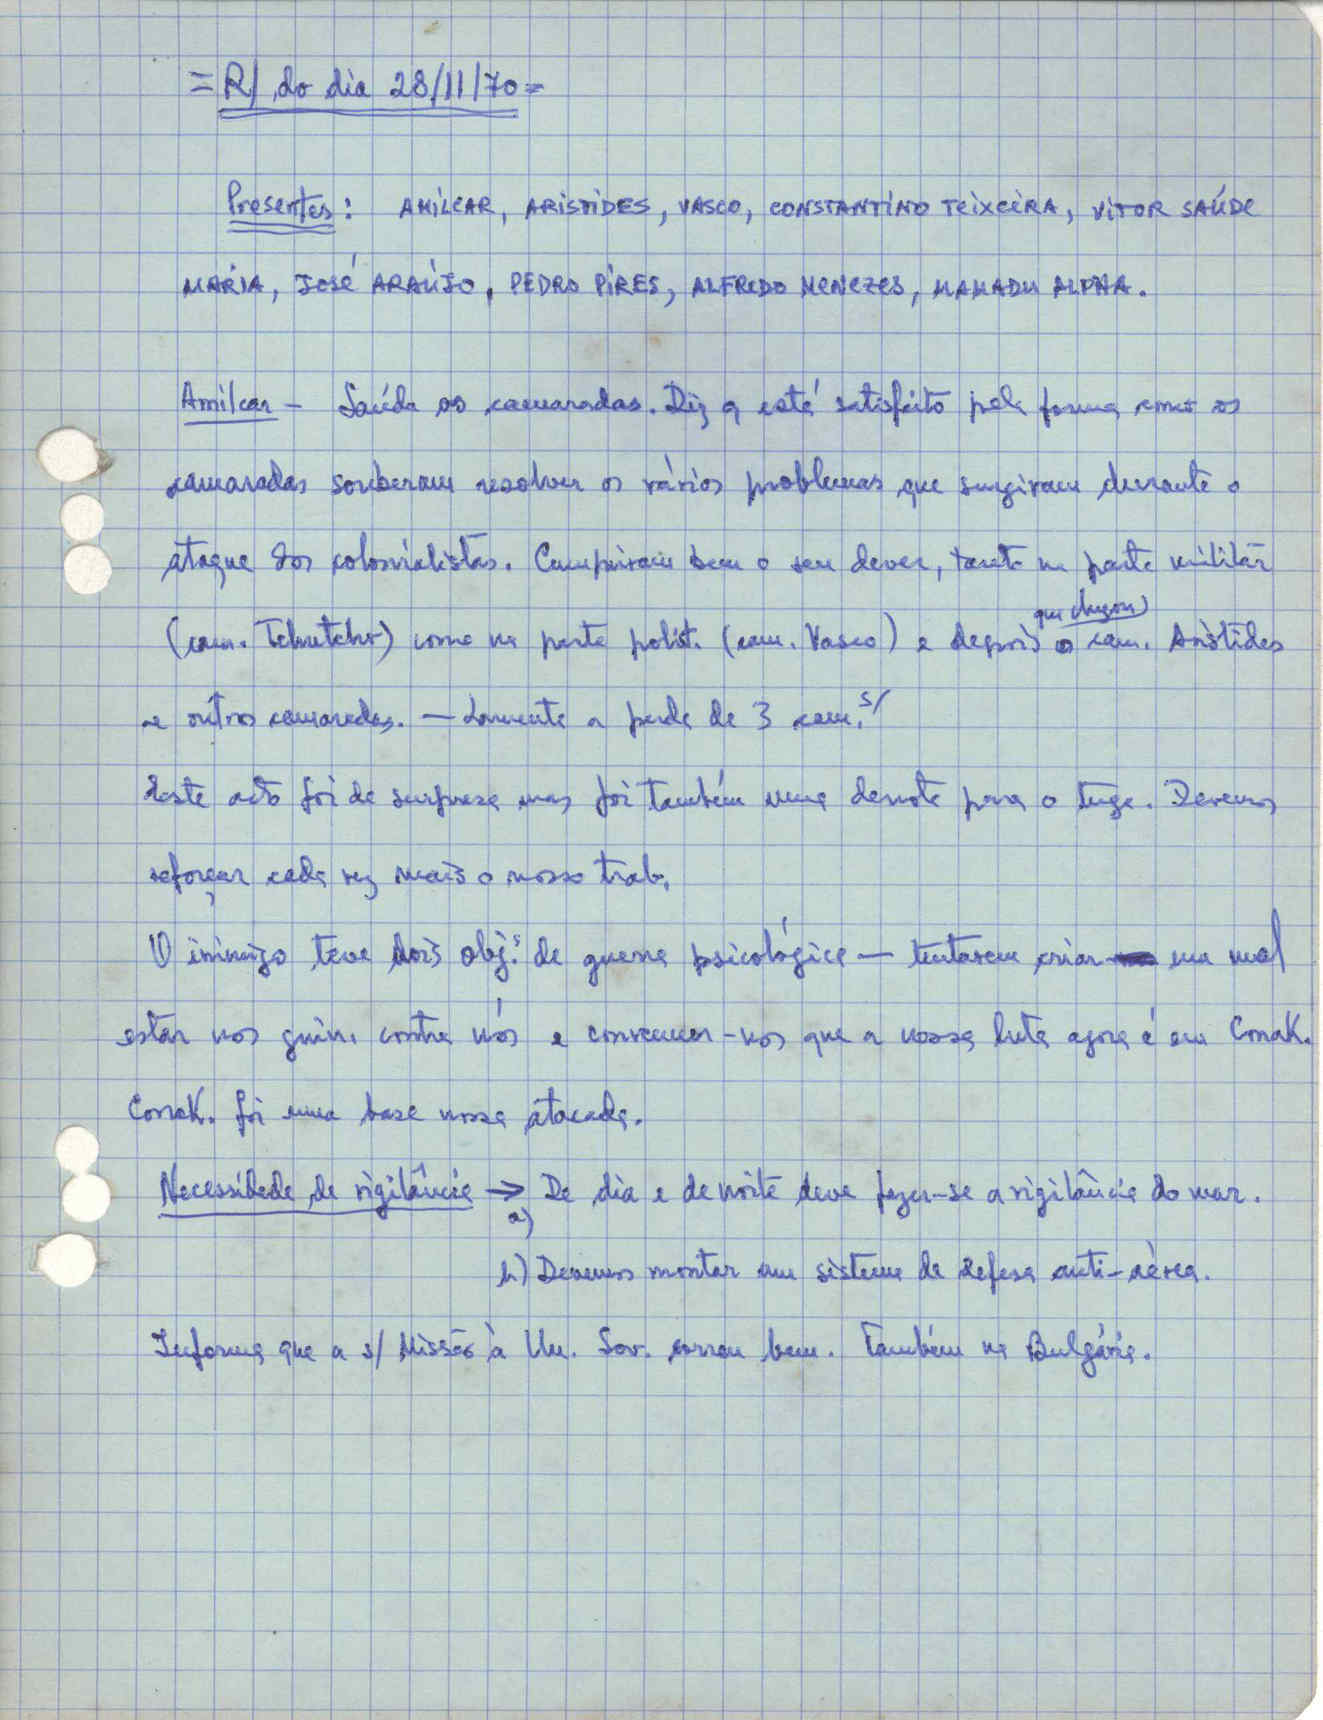 = R/ do dia 28/11/70 =
Presentes: AMÍLCAR, ARISTIDES, VASCO, CONSTANTINO TEIXEIRA, VITOR SAÚDE
MARIA, JOSÉ ARAÚJO, PEDRO PIRES, ALFREDO MENEZES, MAMADU ALPHA.
Amílcar – Saúda os camaradas. Diz q está satisfeito pela forma como os
camaradas souberam resolver os vários problemas que surgiram durante o
ataque dos colonialistas. Cumpriram bem o seu dever, tanto na parte militar
que chegou
(cam. Tchutchu) como na parte polít. (cam. Vasco) e depois o cam. Aristides
e outros camaradas. — Lamenta a perda de 3 cam.s/
Este acto foi de surpresa mas foi também uma derrota para o tuga. Devemos
reforçar cada vez mais o nosso trab.
O inimigo teve dois obj.s de guerra psicológica — tentarem criar um mal
estar nos guin. contra nós e convencer-nos que a nossa luta agora é em Conak.
Conak. foi uma base nossa atacada.
Necessidade de vigilância → De dia e de noite deve fazer-se a vigilância do mar.
a)
b) Devemos montar um sistema de defesa anti-aérea.
Informa que a s/ Missão à Un. Sov. correu bem. Também na Bulgária.